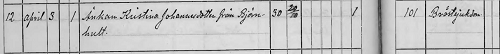 12 april 3 1 Änkan Kristina Johannesdotter från Björn- 30 20/10 1 101 Bröstsjukdom
hult.